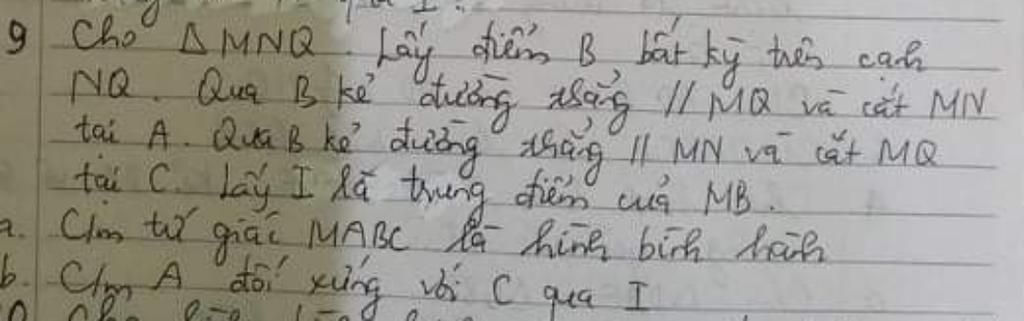 9 Cho △MNQ. Lấy điểm B bất kỳ trên cạnh
NQ. Qua B kẻ đường thẳng // MQ và cắt MN
tại A. Qua B kẻ đường thẳng // MN và cắt MQ
tại C. Lấy I là trung điểm của MB.
a. C/m tứ giác MABC là hình bình hành
b. C/m A đối xứng với C qua I